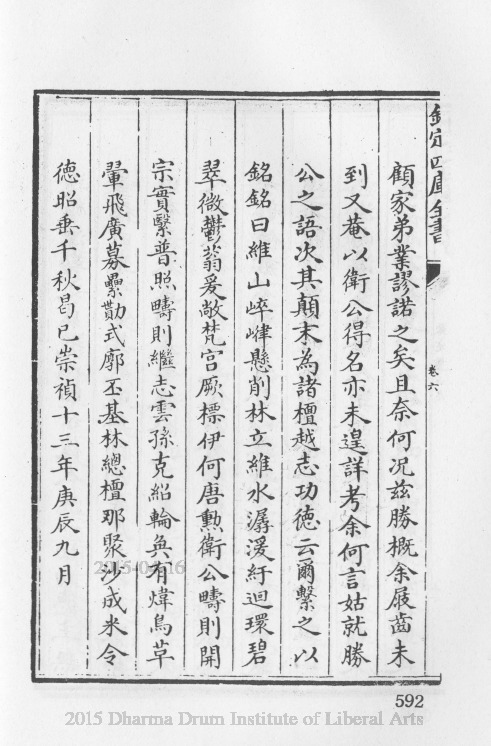 欽定四庫全書
卷六
顧家弟業謬諾之矣且奈何况茲勝概余屐齒未
到又菴以衛公得名亦未遑詳考余何言姑就勝
公之語次其顛末為諸檀越志功德云爾繫之以
銘銘曰維山崒嵂懸削林立維水潺湲紆迴環碧
翠微鬱蓊爰敞梵宮厥標伊何唐勲衛公疇則開
宗實繫普照疇則繼志雲孫克紹輪奐有煒鳥草
翬飛廣募纍勩式廓丕基林總檀那聚沙成米令
德昭垂千秋曷已崇禎十三年庚辰九月
2015-04-16
592
2015 Dharma Drum Institute of Liberal Arts